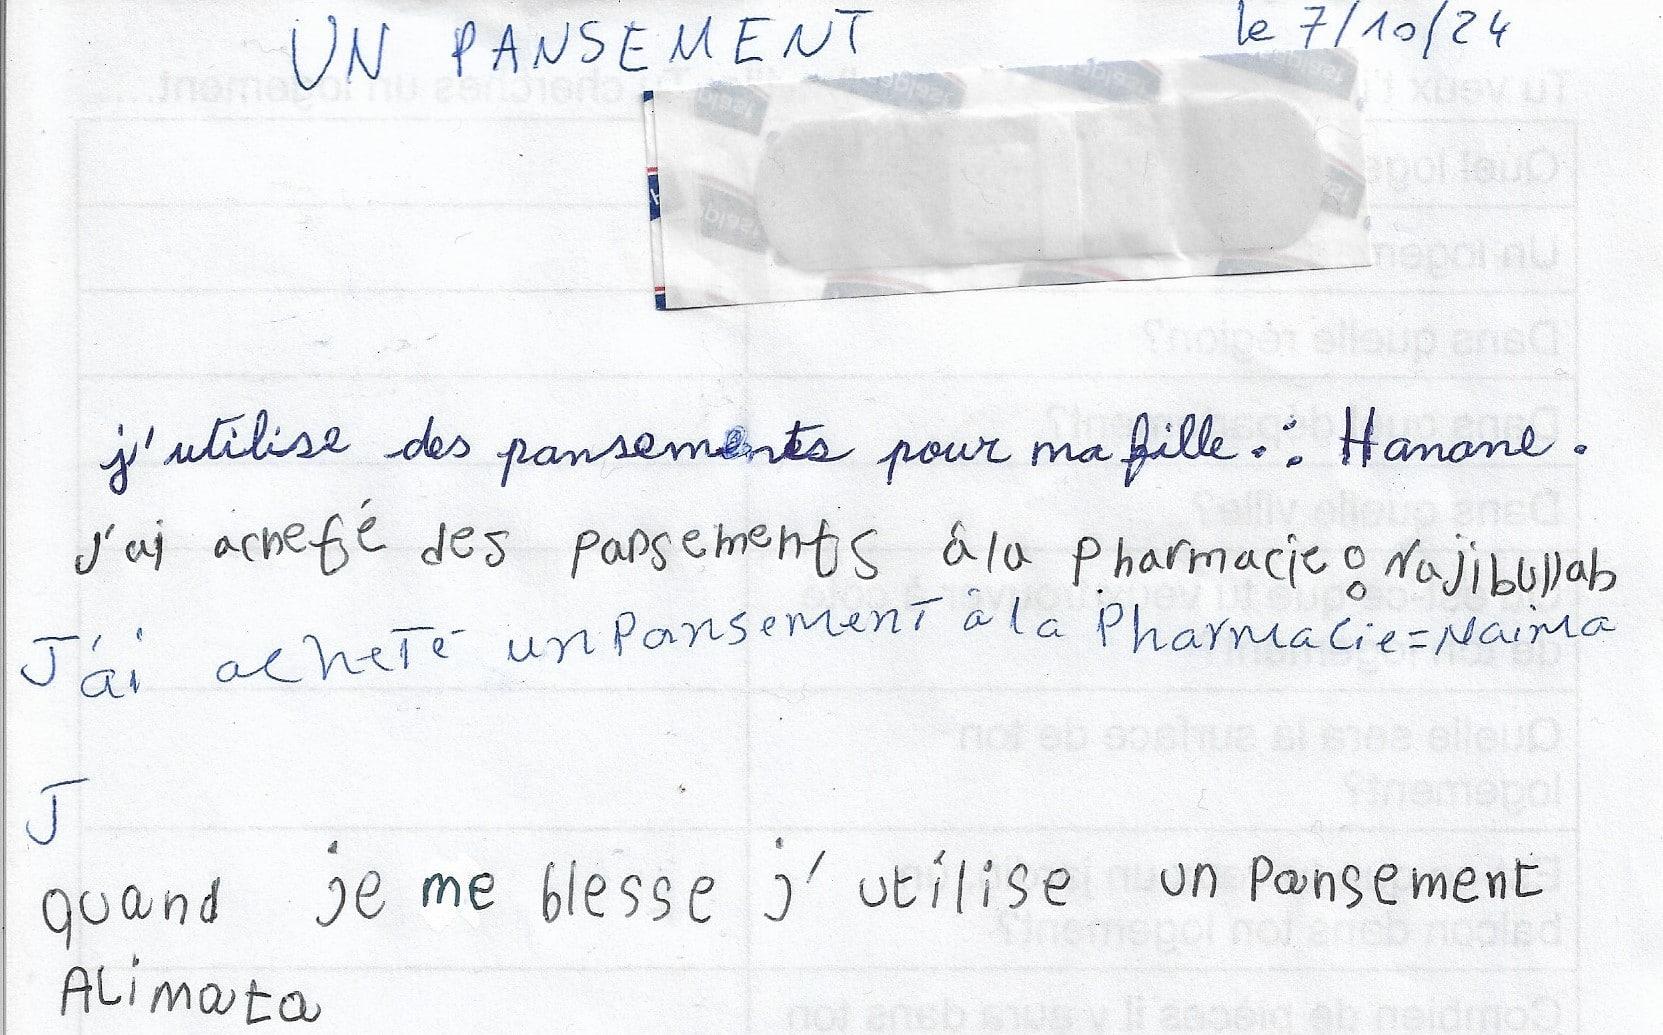 UN PANSEMENT le 7/10/24
j'utilise des pansements pour ma fille.: Hanane.
J'ai acheté des pansements à la Pharmacie : Najibullah
J'ai acheté un Pansement à la Pharmacie = Naima
J
quand je me blesse j'utilise un Pansement
ALimata